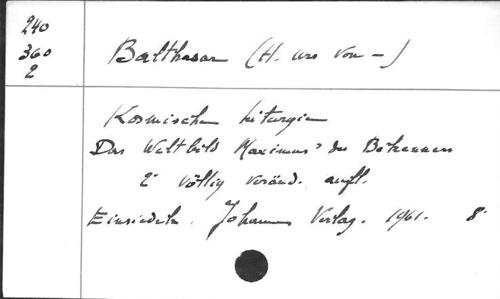 240
360
2
Balthasar (H. urs von —)
Kosmische Liturgie
Das Weltbild Maximus' des Bekenners
2e völlig veränd. aufl.
Einsiedeln. Johannes Verlag. 1961. 8°